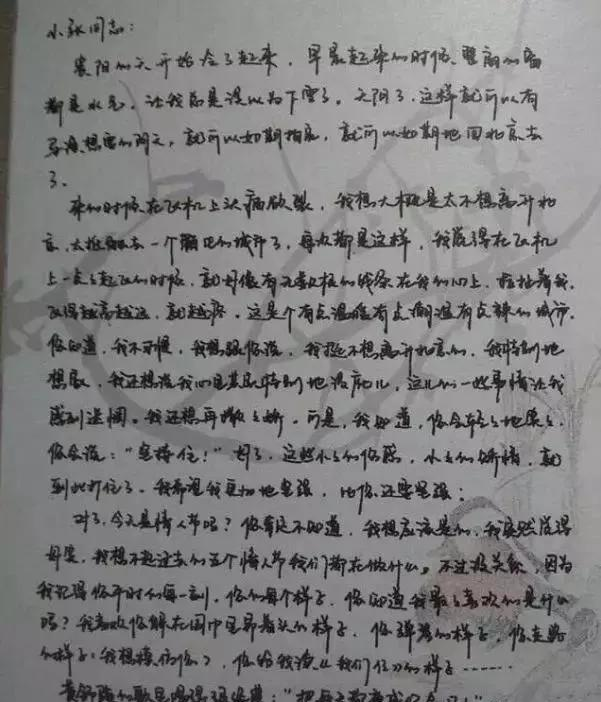 小张同志：
襄阳的天开始冷了起来，早晨起来的时候，整扇的窗
都是水气，让我简直误以为下雪了。天阴了，这样就可以有
想要的阴天，就可以如期拍完，就可以如期地回北京去
了。
来的时候在飞机上头痛欲裂，我想大概是太不想离开北
京，太抵触去一个陌生的城市了，每次都是这样，我觉得在飞机
上一点点起飞的时候，就好像有无数根的线系在我的心上，拉扯着我，
飞得越高越远，就越疼。这是个有点温暖有点潮湿有点辣的城市，
你知道，我不习惯，我想跟你说，我挺不想离开北京的，我特别地
想家，我还想说我心里其实特别地没底儿，这儿的一些事情让我
感到迷惘。我还想再撒撒娇。可是，我知道，你会轻轻地
你会说："坚持住！"好了，这些小小的伤感，小小的矫情，就
到此打住了。我希望我更加地坚强，比你还要坚强；
对了，今天是情人节吗？你肯定不知道，我想应该是的，我突然觉得
我想不起过去的五个情人节我们都在做什么。不过没关系，因为
我记得你平时的每一刻，你的每个样子，你知道我最喜欢的是什么
吗？我喜欢你躺在雨中昂着头的样子，你弹琴的样子，你走路
的样子（我想模仿你），你给我读《我们仨》的样子……
黄舒骏的歌里唱得